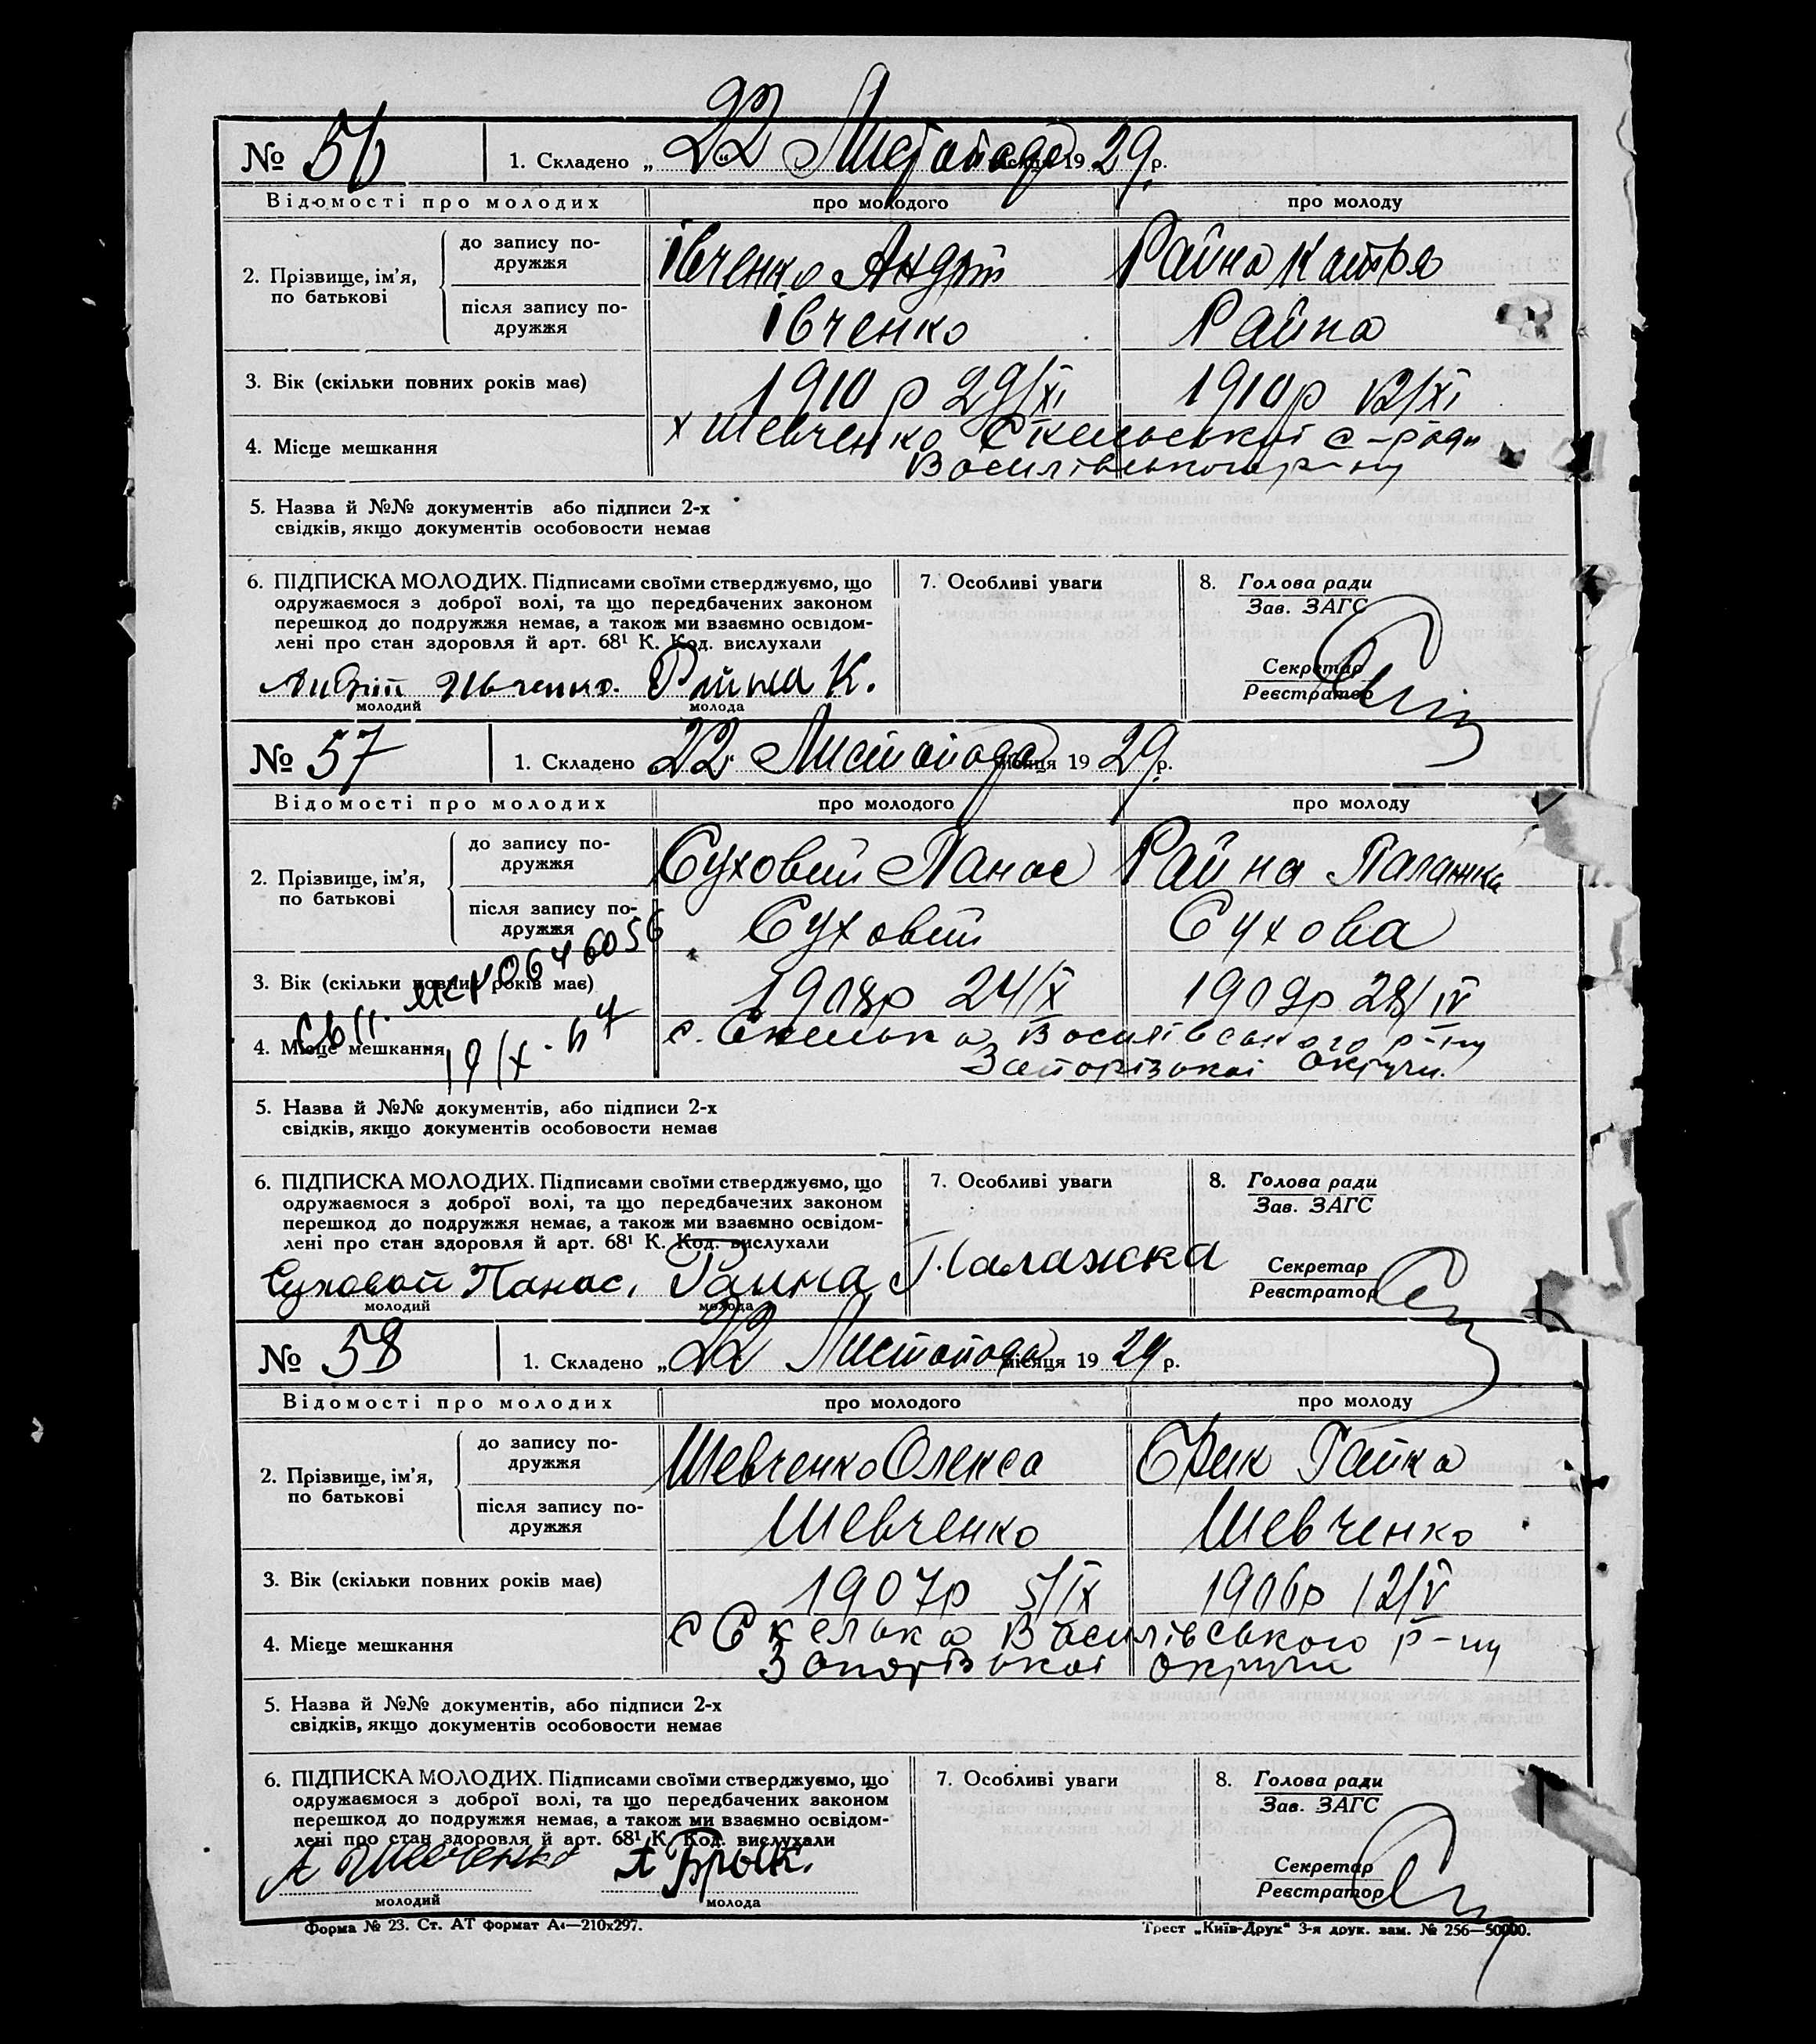 № 56 1. Складено „22“ Листопада місяця 1929 р.
Відомості про молодих про молодого про молоду
2. Прізвище, ім’я, по батькові
до запису по-
дружжя Івченко Андрій Райна Катря
після запису по-
дружжя Івченко Райна
3. Вік (скільки повних років має) 1910 р 29/XI 1910 р 12/XI
4. Місце мешкання х Шевченко Скельської с-ради
Василівського р-ну
5. Назва й №№ документів або підписи 2-х
свідків, якщо документів особовости немає
6. ПІДПИСКА МОЛОДИХ. Підписами своїми стверджуємо, що
одружаємося з доброї волі, та що передбачених законом
перешкод до подружжя немає, а також ми взаємно освідом-
лені про стан здоровля й арт. 68¹ К. Код. вислухали
7. Особливі уваги
8. Голова ради
Зав. ЗАГС
Секретар
Реєстратор
Андрій Ивченко. Райна К.
молодий молода
№ 57 1. Складено „22“ Листопада місяця 1929 р.
Відомості про молодих про молодого про молоду
2. Прізвище, ім’я, по батькові
до запису по-
дружжя Суховий Панас Райна Палажка
після запису по-
дружжя Суховий Сухова
3. Вік (скільки повних років має) 1908р 24/IX 1909р 28/IV
4. Місце мешкання с. Скелька Василівського р-ну
Запорізької Округи.
5. Назва й №№ документів, або підписи 2-х
свідків, якщо документів особовости немає
6. ПІДПИСКА МОЛОДИХ. Підписами своїми стверджуємо, що
одружаємося з доброї волі, та що передбачених законом
перешкод до подружжя немає, а також ми взаємно освідом-
лені про стан здоровля й арт. 68¹ К. Код. вислухали
7. Особливі уваги
8. Голова ради
Зав. ЗАГС
Секретар
Реєстратор
Суховой Панас, Раина Палажка
молодий молода
№ 58 1. Складено „22 Листопада місяця 1929 р.
Відомості про молодих про молодого про молоду
2. Прізвище, ім’я, по батькові
до запису по-
дружжя Шевченко Олекса Брик Гапка
після запису по-
дружжя Шевченко Шевченко
3. Вік (скільки повних років має) 1907р 5/IX 1906р 12/V
4. Місце мешкання с Скелька Василівського р-ну
Запорізької Округи
5. Назва й №№ документів, або підписи 2-х
свідків, якщо документів особовости немає
6. ПІДПИСКА МОЛОДИХ. Підписами своїми стверджуємо, що
одружаємося з доброї волі, та що передбачених законом
перешкод до подружжя немає, а також ми взаємно освідом-
лені про стан здоровля й арт. 68¹ К. Код. вислухали
7. Особливі уваги
8. Голова ради
Зав. ЗАГС
Секретар
Реєстратор
А Шевченко А Брык.
молодий молода
Форма № 23. Ст. АТ формат А₄—210х297. Трест „Київ-Друк“ 3-я друк. зам. № 256—50000.